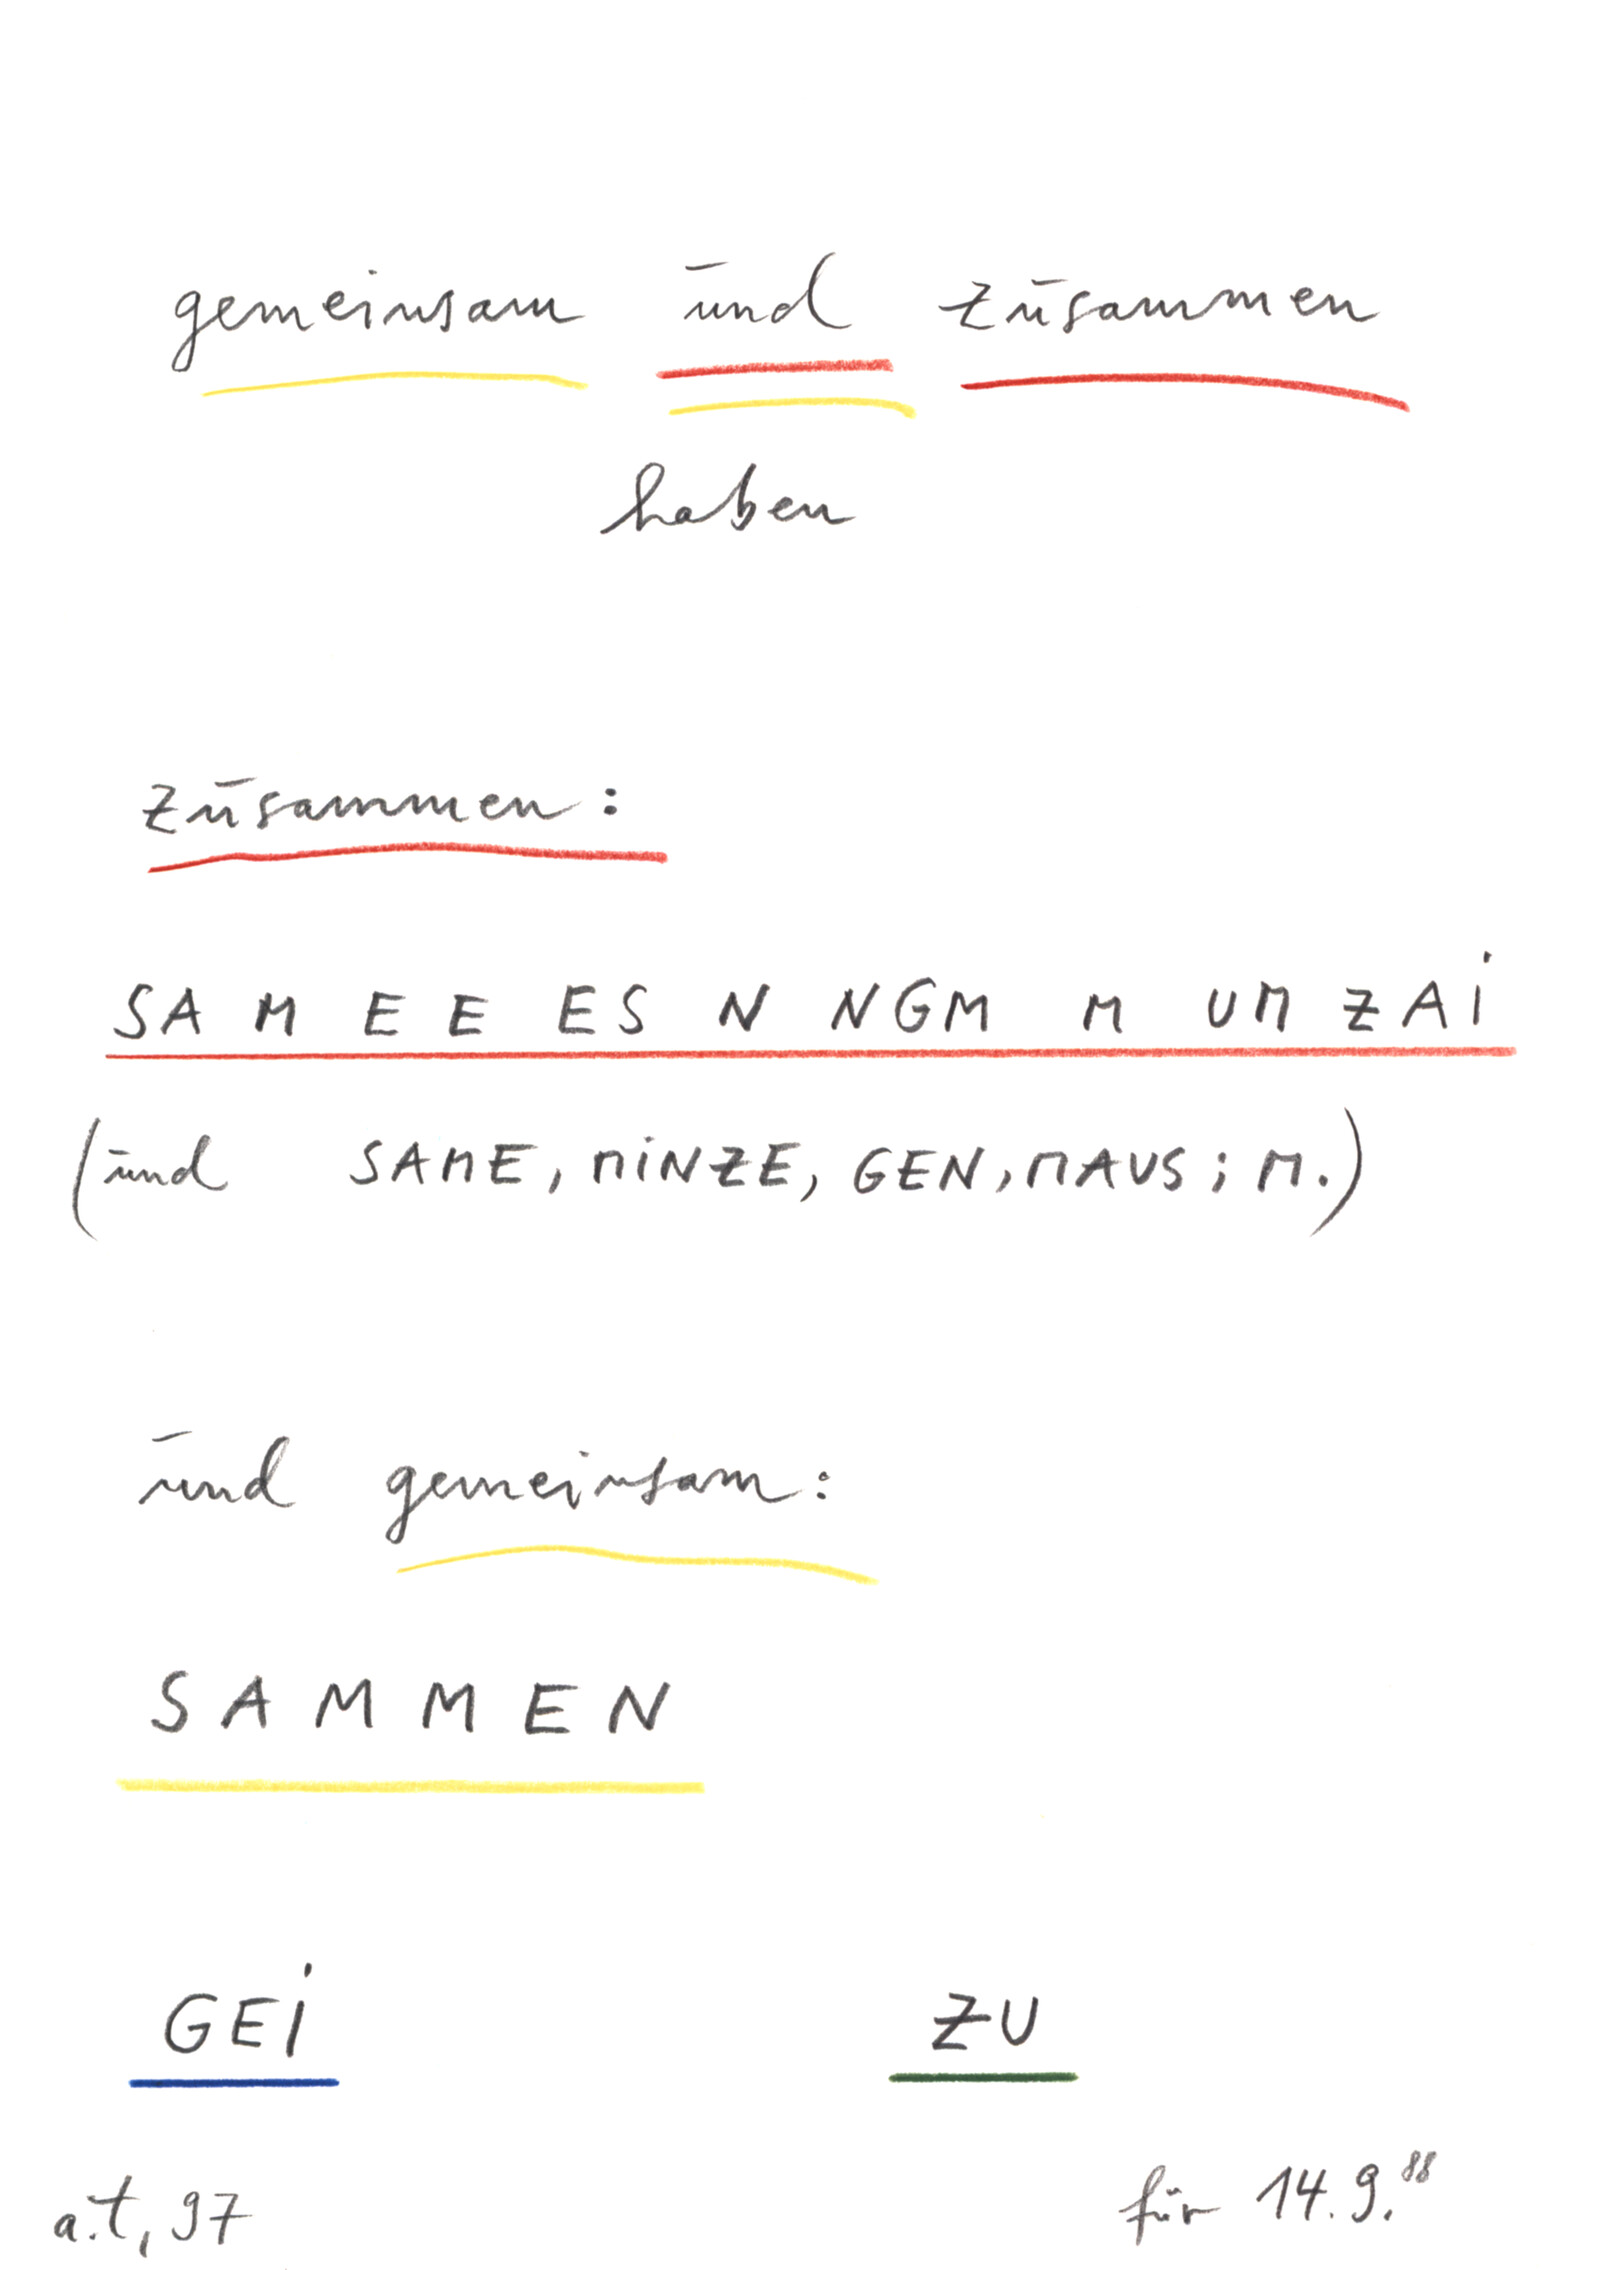 gemeinsam und zusammen
haben
zusammen:
SA M E E ES N NGM M UM ZAI
(und SAME, MINZE, GEN, MAUS; M.)
und gemeinsam:
S A M M E N
GEI ZU
a.t, 97 für 14.9.88